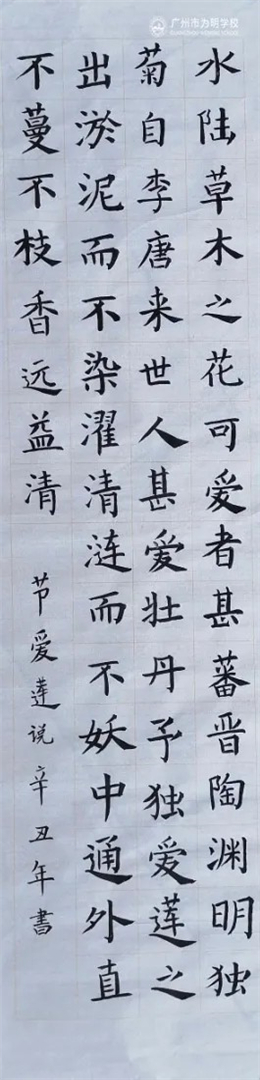 广州市为明学校
水陆草木之花可爱者甚蕃晋陶渊明独
菊自李唐来世人甚爱壮丹予独爱莲之
出淤泥而不染濯清涟而不妖中通外直
不蔓不枝香远益清
节爱莲说辛丑年書